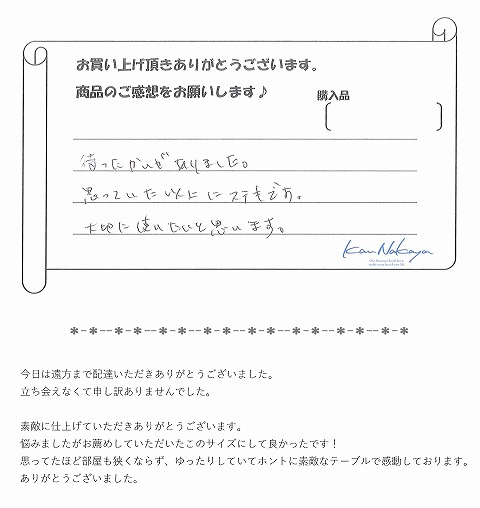 お買い上げ頂きありがとうございます。
商品のご感想をお願いします♪
購入品
待ったかいがありました。
思っていた以上にステキです。
大切に使いたいと思います。
Kan Nakaya
*-*--*--*--*--*--*--*--*--*--*--*--*--*--*-*
今日は遠方まで配達いただきありがとうございました。
立ち会えなくて申し訳ありませんでした。
素敵に仕上げていただきありがとうございます。
悩みましたがお薦めしていただいたこのサイズにして良かったです！
思ってたほど部屋も狭くならず、ゆったりしていてホントに素敵なテーブルで感動しております。
ありがとうございました。